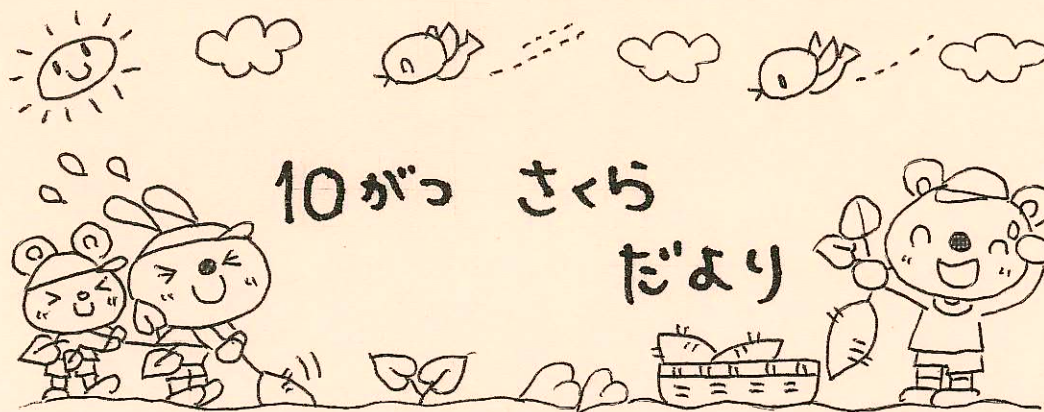 10がつ さくら
だより